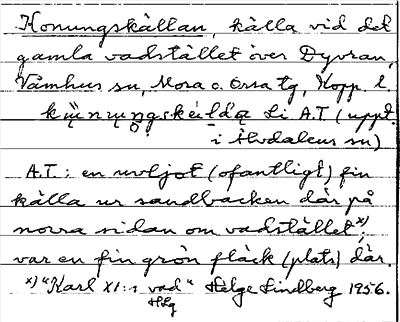 Konungskällan, källa vid det
gamla vadstället över Dyvran,
Våmhus sn, Mora o. Orsa tg, Kopp. l.
Li A.T (uppt.
i Älvdalens sn)
A.T.: en uvljot (ofantligt) fin
källa ur sandbacken där på
norra sidan om vadstället x);
var en fin grön fläck (plats) där.
x) "Karl XI:s vad" Helge Lindberg 1956.
HLg